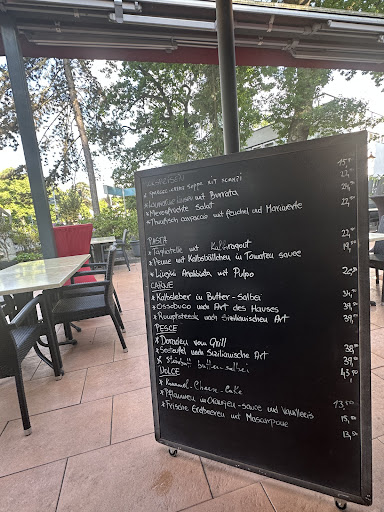 VORSPEISEN
* SPARGEL-CREME SUPPE MIT SCAMPI 15,90
* mit Burrata 22,-
* Meeresfrüchte Salat 24,-
* Thunfisch carpaccio mit fenchel und Marinierte 24,-
PASTA
* Tagliatelle mit Kalbsragout 22,-
* Penne mit Kalbsbällchen in Tomaten sauce 19,-
* Linguini Arrabbiata mit Pulpo 26,-
CARNE
* Kalbsleber in Butter-Salbei 34,-
* Ossobuco nach Art des Hauses 39,-
* Rumpfsteak nach Sizilianischen Art 39,-
PESCE
* Doraden vom Grill 38,-
* Seeteufel nach Sizilianische Art 39,-
* butter-salbei 43,-
DOLCE
* Karamel-Cheese-Cake
* Pflaumen in Orangen-sauce und Vanilleeis 13,50
* Frische Erdbeeren mit Mascarpone 15,-
13,50